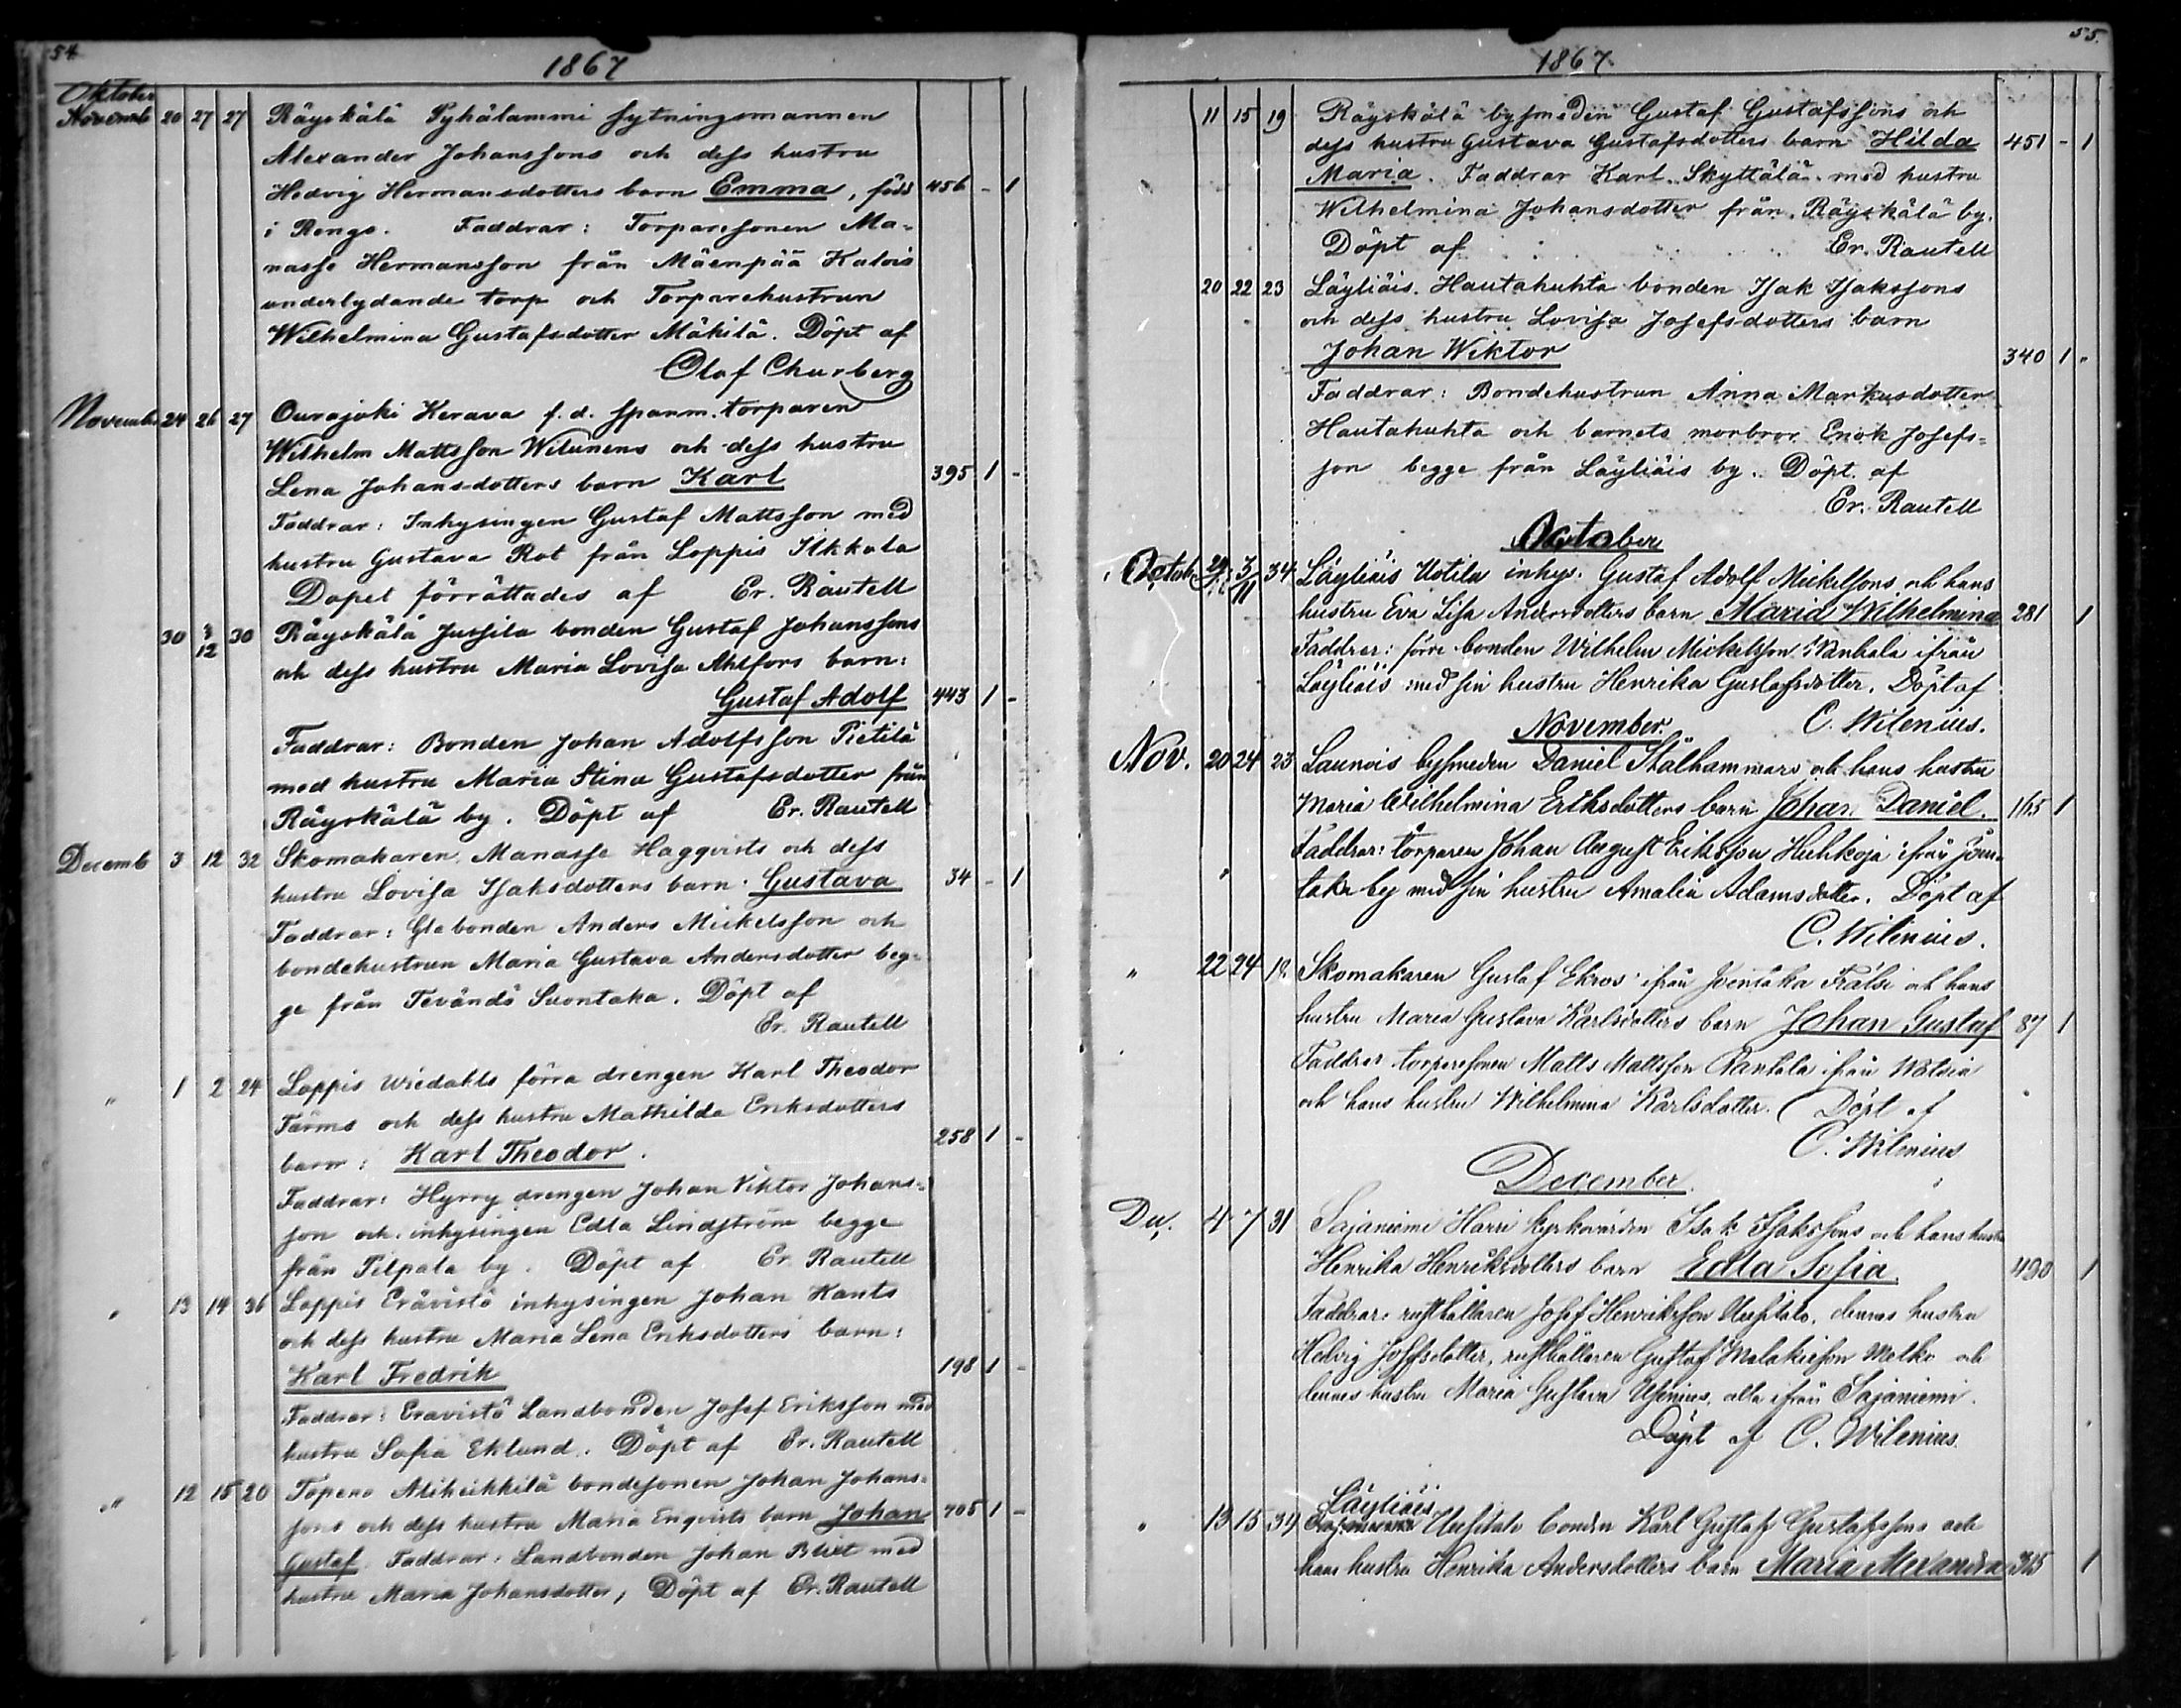 54
1867
Oktober
Novemb 20 27 27 Räyskälä Pyhälammi sytningsmannen
Alexander Johanssons och dess hustru
Hedvig Hermansdotters barn Emma, född 456 - 1
i Rengo. Faddrar: Torparesonen Ma-
nasse Hermansson från Mäenpää Kalois
underlydande torp och Torparehustrun
Wilhelmina Gustafsdotter Mäkilä. Döpt af
Olof Churberg
November 24 26 27 Ourajoki Kerava f.d. spanm. torparen
Wilhelm Mattsson Wilunens och dess hustru
Lena Johansdotters barn Karl 395 1 -
Faddrar: Inhysingen Gustaf Mattsson med
hustru Gustava Rot från Loppis Ilkkala
Dopet förrättades af Er. Rautell
30 3/12 30 Räyskälä Jussila bonden Gustaf Johanssons
och dess hustru Maria Lovisa Ahlfors barn:
Gustaf Adolf 443 1 -
Faddrar: Bonden Johan Adolfsson Pietilä
med hustru Maria Stina Gustafsdotter från
Räyskälä by. Döpt af Er. Rautell
Decemb 3 12 32 Skomakaren Manasse Hagqvists och dess
hustru Lovisa Isaksdotters barn Gustava 34 - 1
Faddrar: Glebonden Anders Mickelsson och
bondehustrun Maria Gustava Andersdotter beg-
ge från Tevändö Suontaka. Döpt af
Er. Rautell
" 1 2 24 Loppis förra drengen Karl Theodor
Tärms och dess hustru Mathilda Eriksdotters
barn: Karl Theodor. 258 1 -
Faddrar: Hyrry drengen Johan Viktor Johans-
son och inhysingen Edla Lindström begge
från Pilpala by. Döpt af Er. Rautell
" 13 14 36 Loppis Erävistö inhysingen Johan Kants
och dess hustru Maria Lena Eriksdotters barn:
Karl Fredrik 198 1 -
Faddrar: Eravistö Landbonden Josef Eriksson med
hustru Sofia Eklund. Döpt af Er. Rautell
" 12 15 20 Topeno Aliheikkilä bondesonen Johan Johans-
sons och dess hustru Maria Enqvists barn Johan 705 1 -
Gustaf. Faddrar: Landbonden Johan Blixt med
hustru Maria Johansdotter, Döpt af Er. Rautell
55.
1867.
11 15 19 Räyskälä bysmeden Gustaf Gustafssons och
dess hustru Gustava Gustafsdotters barn Hilda 451 - 1
Maria. Faddrar Karl Skyttälä med hustru
Wilhelmina Johansdotter från Räyskälä by.
Döpt af Er. Rautell
20 22 23 Läyliäis Hautahuhta bonden Isak Isakssons
och dess hustru Lovisa Josefsdotters barn
Johan Wiktor 340 1 -
Faddrar: Bondehustrun Anna Markusdotter
Hautahuhta och barnets morbror Enok Josefs-
son begge från Läyliäis by. Döpt af
Er. Rautell
October
Octob 29 3/11 34 Läyliäis Uotila inhys. Gustaf Adolf Mickelsons och hans
hustru Eva Lisa Andersdotters barn Maria Wilhelmina 281 1
Faddrar: förre bonden Wilhelm Mickelsson Wanhala ifrån
Läyliäis med sin hustru Henrika Gustafsdotter. Döpt af
November. C. Wilenius.
Nov. 20 24 23 Launois bysmeden Daniel Stålhammars och hans hustru
Maria Wilhelmina Eriksdotters barn Johan Daniel. 165 1
Faddrar: torparen Johan August Eriksson Huhkoja ifrån Joen-
taka by med sin hustru Amalia Adamsdotter. Döpt af
C. Wilenius.
" 22 24 18 Skomakaren Gustaf Ekros ifrån Joentaka Frälsi och hans
hustru Maria Gustava Karlsdotters barn Johan Gustaf 87 1
Faddrar torparesonen Matts Mattsson Rantala ifrån
och hans hustru Wilhelmina Karlsdotter. Döpt af
C. Wilenius
December.
Dec. 4 7 31 Sajaniemi Harri kyrkovärden Isak Isakssons och hans hustru
Henrika Henriksdotters barn Edla Sofia 490 1
Faddrar: rusthållaren Josef Henriksson Uusitalo, dennes hustru
Hedvig Josefsdotter, rusthållaren Gustaf Malakieson Molko och
dennes hustru Maria Gustava Usenius, alla ifrån Sajaniemi.
Döpt af C. Wilenius.
Läyliäis
" 13 15 34 Uusitalo bonden Karl Gustaf Gustafssons och
hans hustru Henrika Andersdotters barn Maria Alexandra 325 1